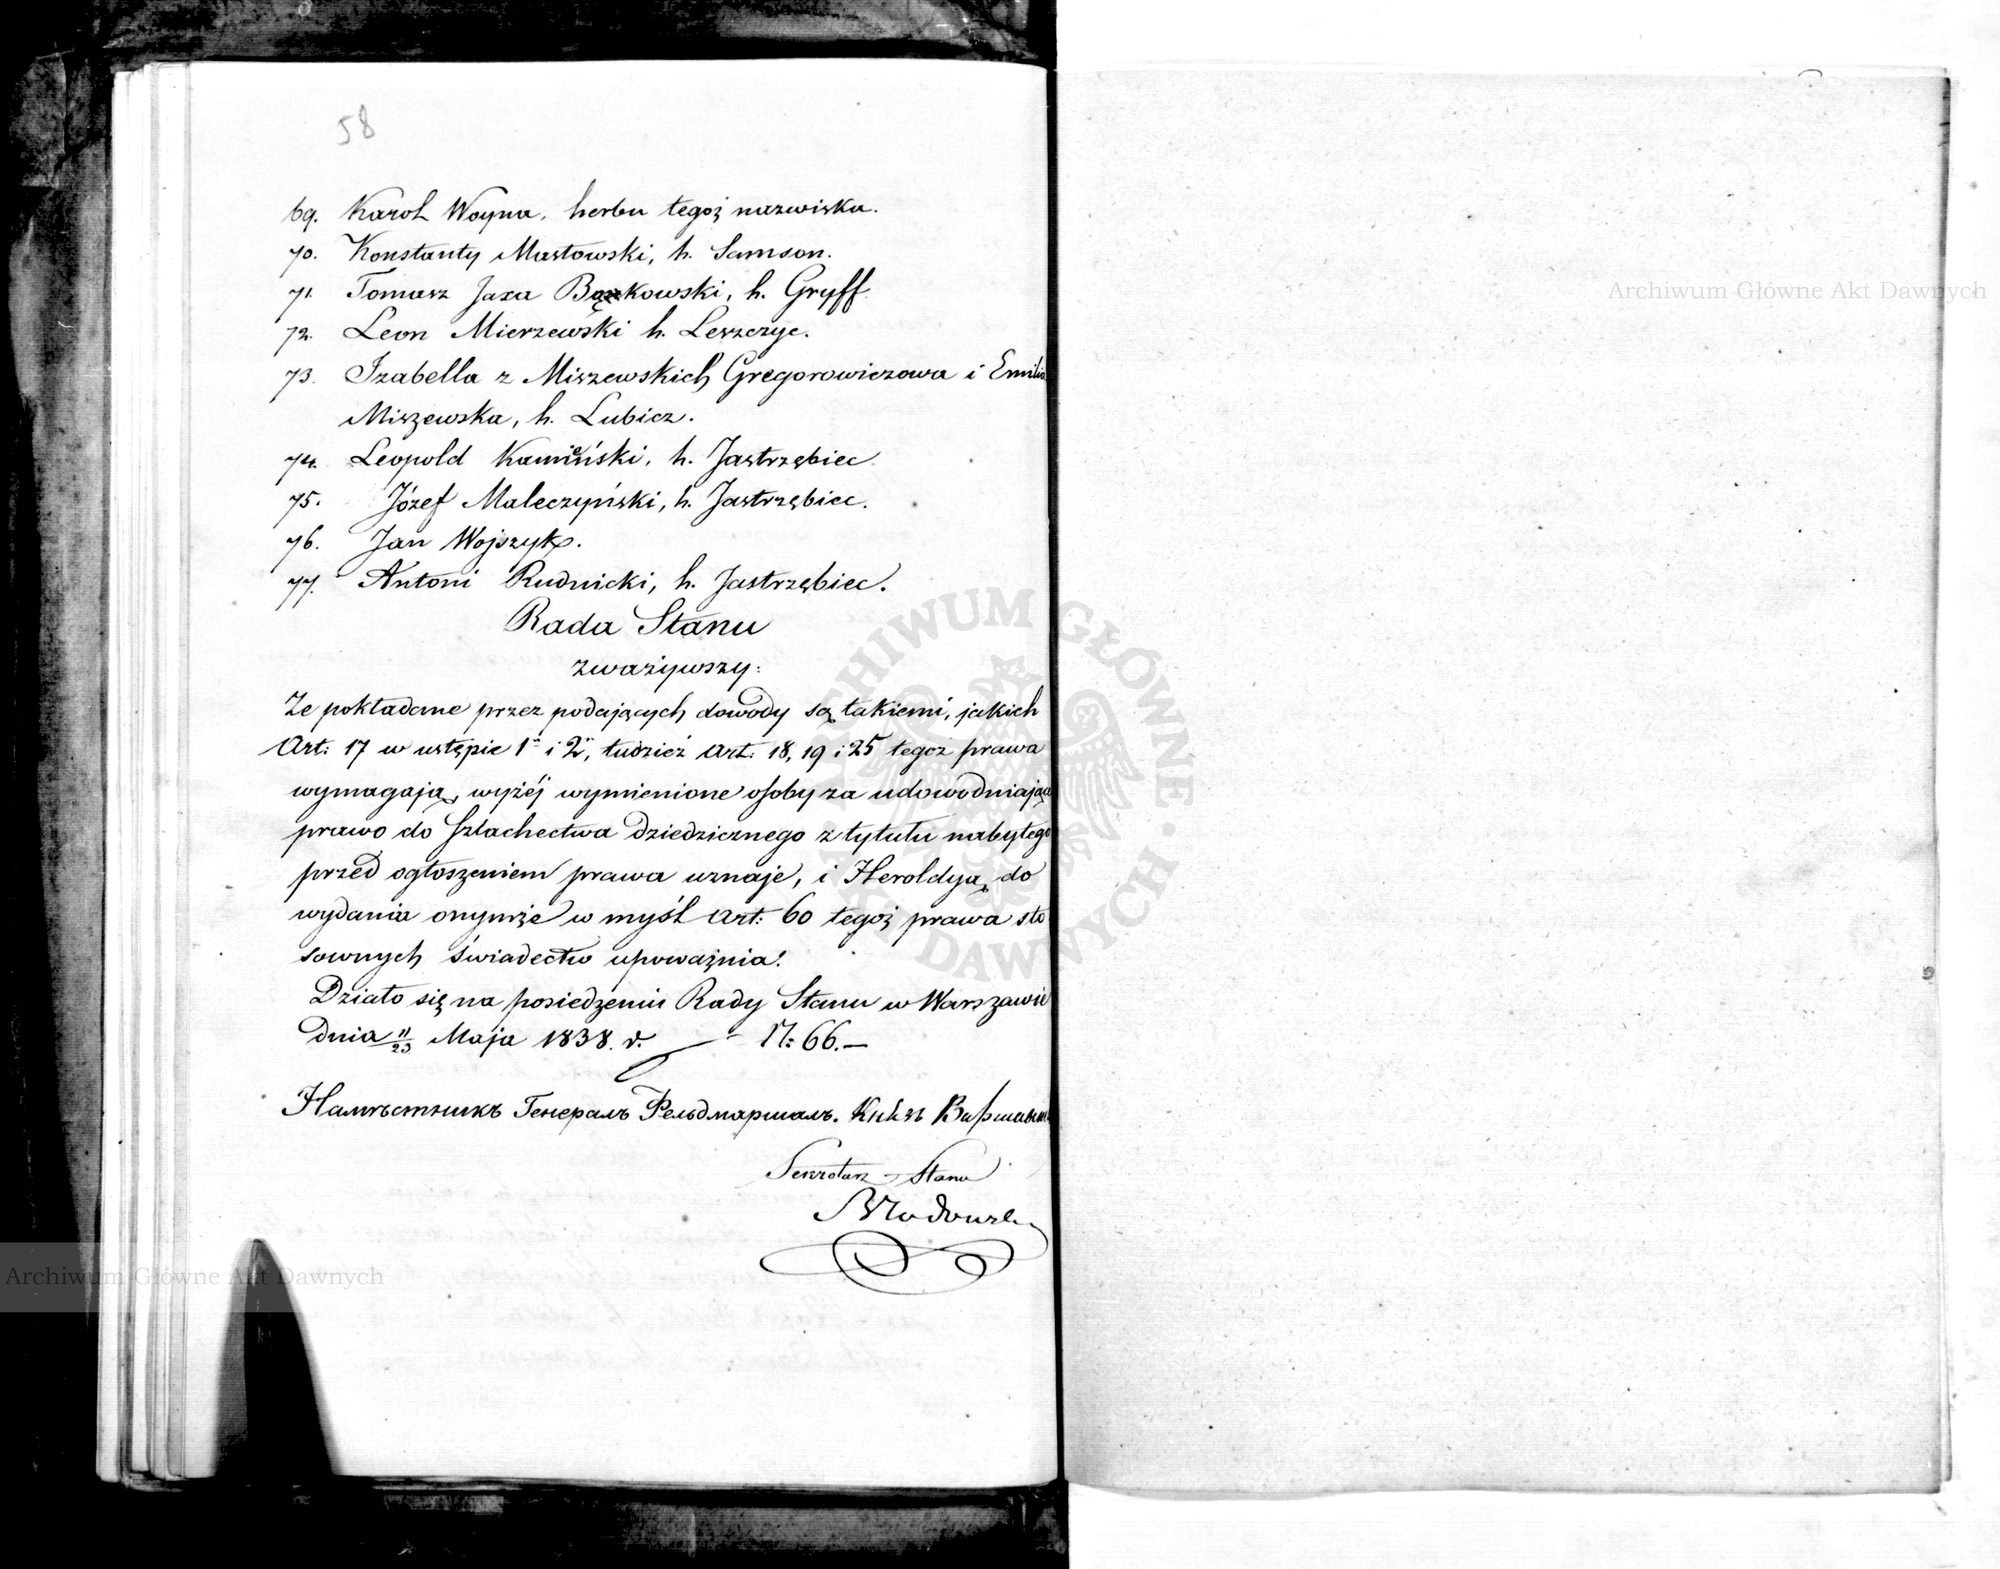 58
69. Karol Woyna, herbu tegoż nazwiska.
70. Konstanty Masłowski, h. Samson.
71. Tomasz Jaxa Bąkowski, h. Gryff.
72. Leon Mierzewski h. Leszczyc.
73. Izabella z Miszewskich Gregorowiczowa i Emilia
Miszewska, h. Lubicz.
74. Leopold Kamieński, h. Jastrzębiec
75. Józef Maleczyński, h. Jastrzębiec.
76. Jan Wojszyk.
77. Antoni Rudnicki, h. Jastrzębiec.
Rada Stanu
zważywszy:
Że pokładane przez podających dowody są takiemi, jakich
Art: 17 w ustępie 1 i 2, tudzież Art: 18, 19 i 25 tegoż prawa
wymagają, wyżéj wymienione osoby za udowodniające
prawo do szlachectwa dziedzicznego z tytułu nabytego
przed ogłoszeniem prawa uznaje, i Heroldyą do
wydania onymże w myśl Art: 60 tegoż prawa sto
sownych świadectw upoważnia.
Działo się na posiedzeniu Rady Stanu w Warszawie
dnia 11/23 Maja 1838. r. N: 66.—
Намѣстникъ Генералъ Фельдмаршалъ. Князь Варшавскій
Sekretarz Stanu
Archiwum Główne Akt Dawnych
Archiwum Główne Akt Dawnych
ARCHIWUM GŁÓWNE AKT DAWNYCH